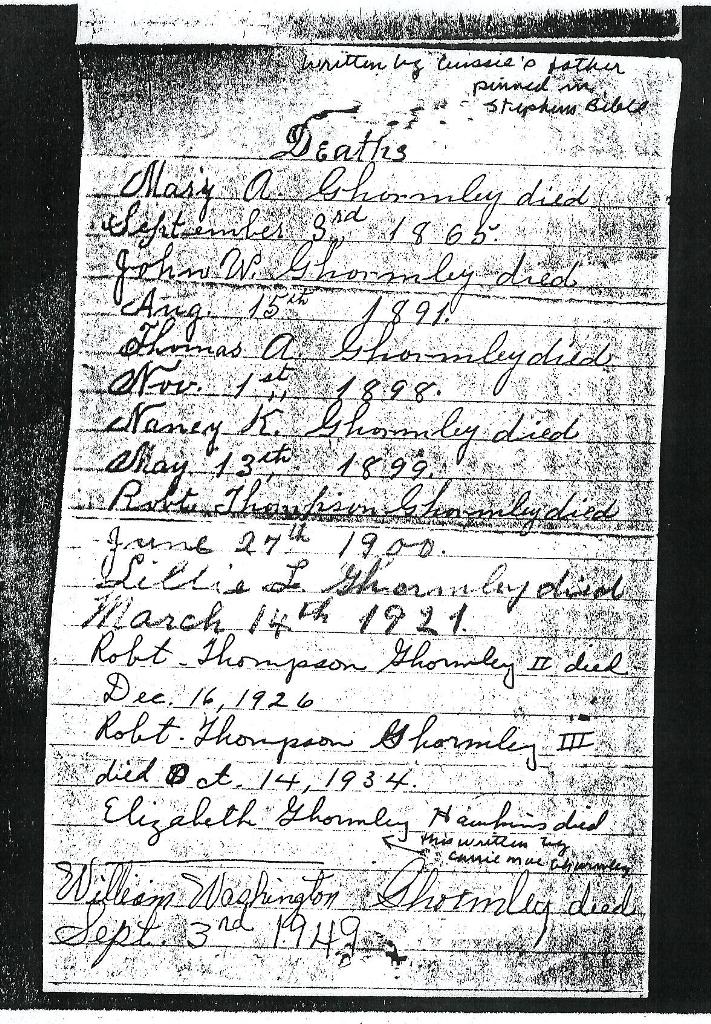 written by Cussie's father
pinned in
Stephens Bible
Deaths
Mary A. Ghormley died
September 3rd 1865.
John W. Ghormley died
Aug. 15th 1891.
Thomas A. Ghormley died
Nov. 1st 1898.
Nancy K. Ghormley died
May 13th 1899.
Robt. Thompson Ghormley died
June 27th 1900.
Lillie L. Ghormley died
March 14th 1921.
Robt. Thompson Ghormley II died
Dec. 16, 1926
Robt. Thompson Ghormley III
died Oct. 14, 1934.
Elizabeth Ghormley Hawkins died
this written by
Carrie Mae Ghormley
William Washington Ghormley died
Sept. 3rd 1949